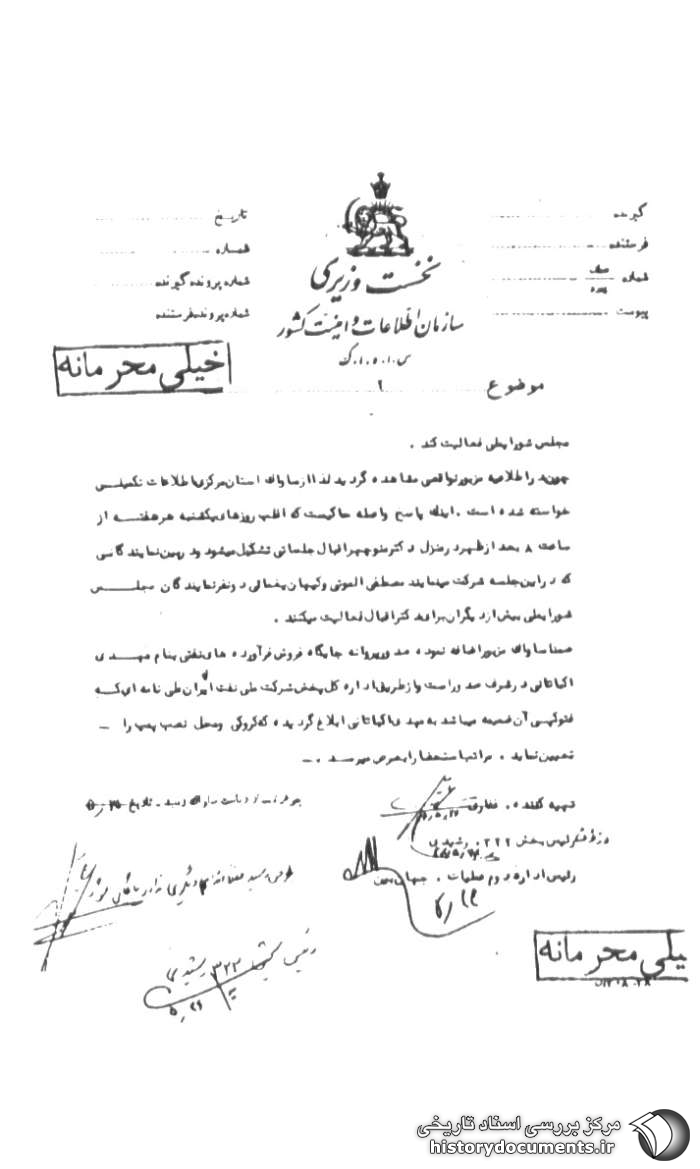 گیرنده
فرستنده
شماره
پیوست
نخست وزیری
سازمان اطلاعات و امنیت کشور
س.ا.و.ا.ک
تاریخ
شماره
شماره پرونده گیرنده
شماره پرونده فرستنده
خیلی محرمانه
موضوع
۲
مجلس شورایملی فعالیت کند .
چون در اطلاعیه مزبور نواقصی مشاهده گردید لذا از ساواک استان مرکزی اطلاعات تکمیلی
خواسته شده است . اینک پاسخ واصله حاکیست که اغلب روزهای یکشنبه هر هفته از
ساعت ۸ بعد از ظهر در منزل دکتر منوچهر اقبال جلساتی تشکیل میشود و در بین نمایندگانی
که در این جلسه شرکت مینمایند مصطفی الموتی و کیهان یغمائی دو نفر نمایندگان مجلس
شورایملی بیش از دیگران برای دکتر اقبال فعالیت میکنند .
ضمنا ساواک مزبور اضافه نموده صدور پروانه جایگاه فروش فرآورده های نفتی بنام مهدی
اکباتانی در شرف صدور است و از طریق اداره کل پخش شرکت ملی نفت ایران طی نامه ای که
فتوکپی آن ضمیمه میباشد به مهدی اکباتانی ابلاغ گردیده که کروکی و محل نصب پمپ را -
تعیین نماید . مراتب استحضارا بعرض میرسد . -
تهیه کننده . غفاری
رئیس بخش ۳۲۲ . رشیدی
رئیس اداره دوم عملیات . جهان بین
رئیس بخش ۳۲۲ رشیدی
۵٫۲۶
یلی محرمانه
مرکز بررسی اسناد تاریخی
historydocuments.ir